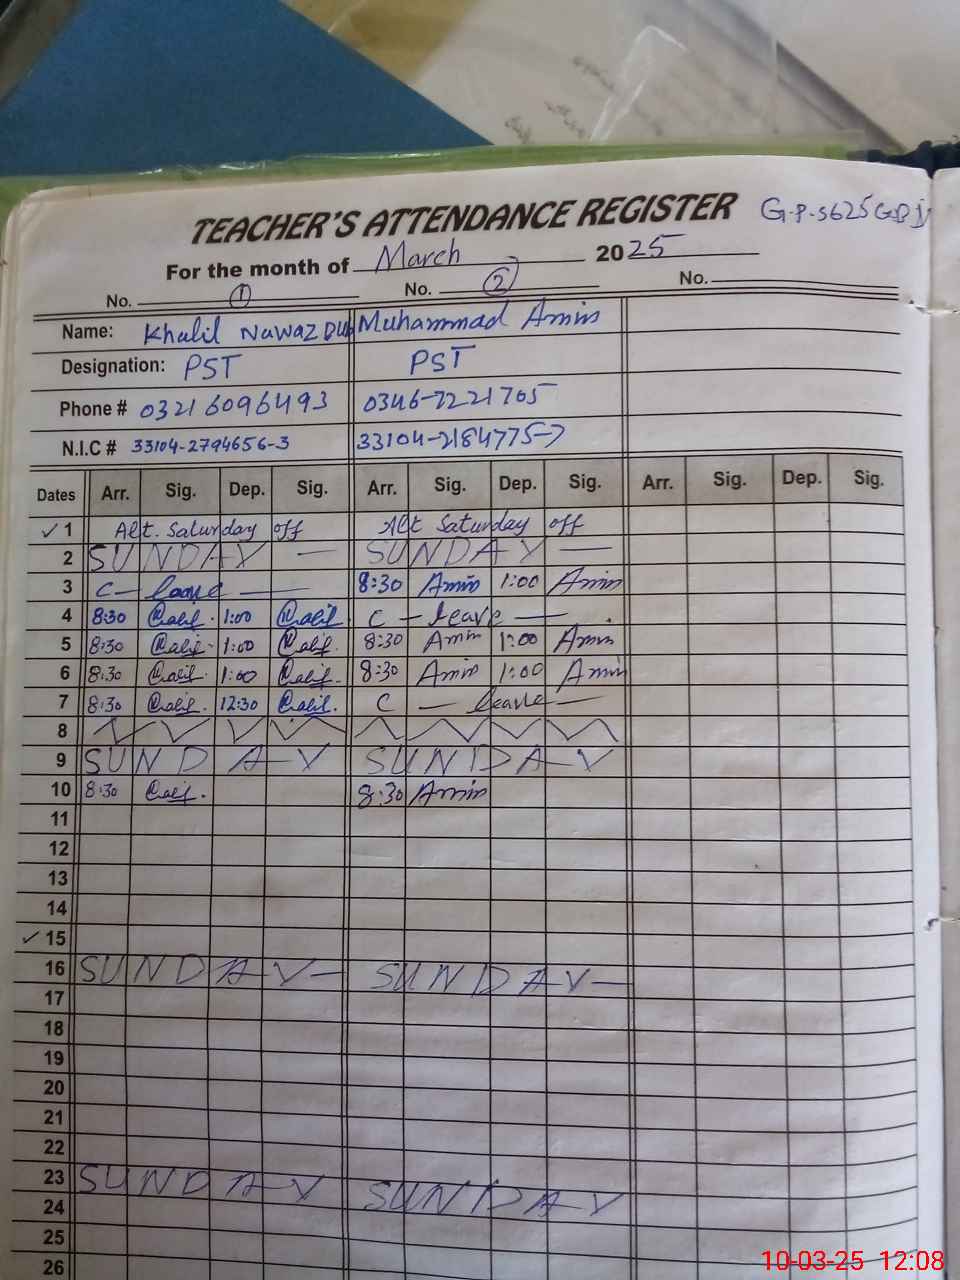 TEACHER'S ATTENDANCE REGISTER G.P.S 625 G.B
For the month of March 2025
No. 1 No. 2 No.
Name: Khalil Nawaz Muhammad Amin
Designation: PST PST
Phone # 03216096493 0346-7221705
N.I.C # 33104-2794656-3 33104-2184775-7
Dates Arr. Sig. Dep. Sig. Arr. Sig. Dep. Sig. Arr. Sig. Dep. Sig.
✓ 1 Alt. Saturday off Alt Saturday off
2 SUNDAY — SUNDAY —
3 C — leave — 8:30 Amin 1:00 Amin
4 8:30 1:00 C — leave —
5 8:30 1:00 8:30 Amin 1:00 Amin
6 8:30 1:00 8:30 Amin 1:00 Amin
7 8:30 12:30 C — leave —
8
9 SUNDAY SUNDAY
10 8:30 8:30 Amin
11
12
13
14
✓ 15
16 SUNDAY — SUNDAY —
17
18
19
20
21
22
23 SUNDAY SUNDAY
24
25
26
10-03-25 12:08